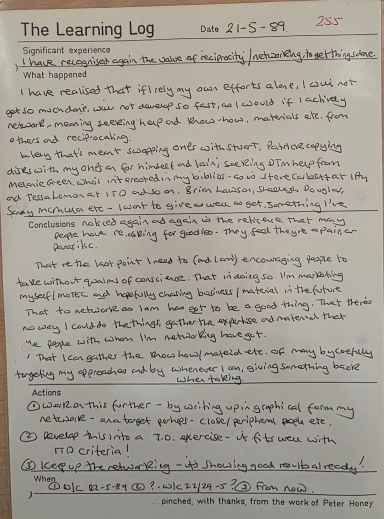 The Learning Log Date 21-5-89 255
Significant experience
I have recognised again the value of reciprocity/networking, to get things done.
What happened
I have realised that if I rely my own efforts alone, I will not
get so much done, will not develop so fast, as I would if I actively
network - meaning seeking help and know-how, materials etc. from
others and reciprocating.
that's meant swapping with Stuart, Patrick copying
disks with my for himself and Iain, seeking DTM help from
Melanie Green, who's interested in my biblios - so is Steve Corbett at IPM
and Tessa Lemon at ITD and so on. Brian Lawson, Douglas,
etc - I want to give as well as get. Something I've
Conclusions noticed again and again is the reticence that many
people have re. asking for goodies - they feel they're a pain, or
parasitic.
That re the last point I need to (and am) encouraging people to
take without qualms of conscience. That in doing so I'm marketing
myself/MOTEC and hopefully chasing business/material in the future
That to network as I am has got to be a good thing. That there's
no way I could do the things, gather the expertise and material that
the people with whom I'm networking have got.
That I can gather the know how/material etc. of many by carefully
targeting my approaches and by whenever I can, giving something back
when taking.
Actions
① Work on this further - by writing up in graphical form my
network - as a target perhaps - close/peripheral people etc.
② Develop this into a T.O. exercise - it fits well with
ITD criteria!
③ Keep up the networking - it's showing good results already!
When
① W/C 22-5-89 ② ? - W/C 22/29-5? ③ From now.
...pinched, with thanks, from the work of Peter Honey